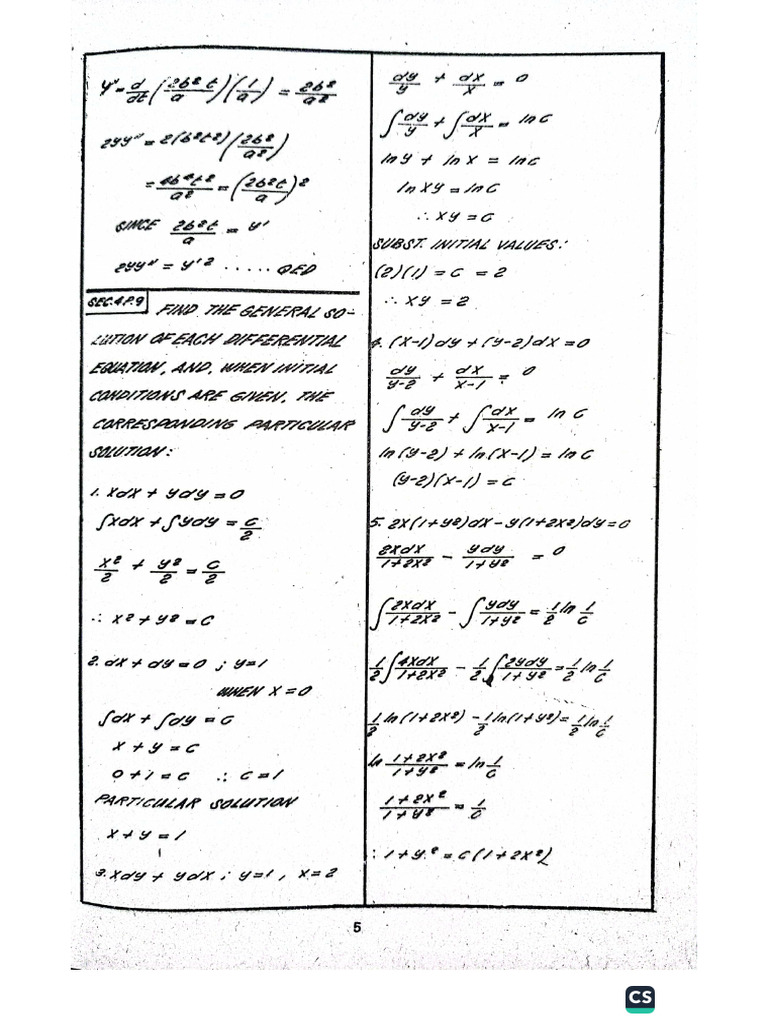 y" = d/dt (2b²t/a)(1/a) = 2b²/a²
2yy" = 2(b²t²)(2b²/a²)
= 4b⁴t²/a² = (2b²t/a)²
SINCE 2b²t/a = y'
2yy" = y'² ..... QED
SEC.4,P.9 FIND THE GENERAL SO-
LUTION OF EACH DIFFERENTIAL
EQUATION, AND, WHEN INITIAL
CONDITIONS ARE GIVEN, THE
CORRESPONDING PARTICULAR
SOLUTION:
1. xdx + ydy = 0
∫xdx + ∫ydy = C/2
x²/2 + y²/2 = C/2
∴ x² + y² = C
2. dx + dy = 0 ; y=1
WHEN X = 0
∫dx + ∫dy = C
x + y = C
0 + 1 = C ∴ C = 1
PARTICULAR SOLUTION
x + y = 1
3. xdy + ydx ; y=1, x=2
dy/y + dx/x = 0
∫dy/y + ∫dx/x = ln C
ln y + ln x = ln C
ln xy = ln C
∴ xy = C
SUBST. INITIAL VALUES:
(2)(1) = C = 2
∴ xy = 2
4. (x-1)dy + (y-2)dx = 0
dy/y-2 + dx/x-1 = 0
∫dy/y-2 + ∫dx/x-1 = ln C
ln(y-2) + ln(x-1) = ln C
(y-2)(x-1) = C
5. 2x(1+y²)dx - y(1+2x²)dy = 0
2xdx/1+2x² - ydy/1+y² = 0
∫2xdx/1+2x² - ∫ydy/1+y² = 1/2 ln 1/C
1/2 ∫4xdx/1+2x² - 1/2 ∫2ydy/1+y² = 1/2 ln 1/C
1/2 ln(1+2x²) - 1/2 ln(1+y²) = 1/2 ln 1/C
ln 1+2x²/1+y² = ln 1/C
1+2x²/1+y² = 1/C
∴ 1+y² = C(1+2x²)
5
CS